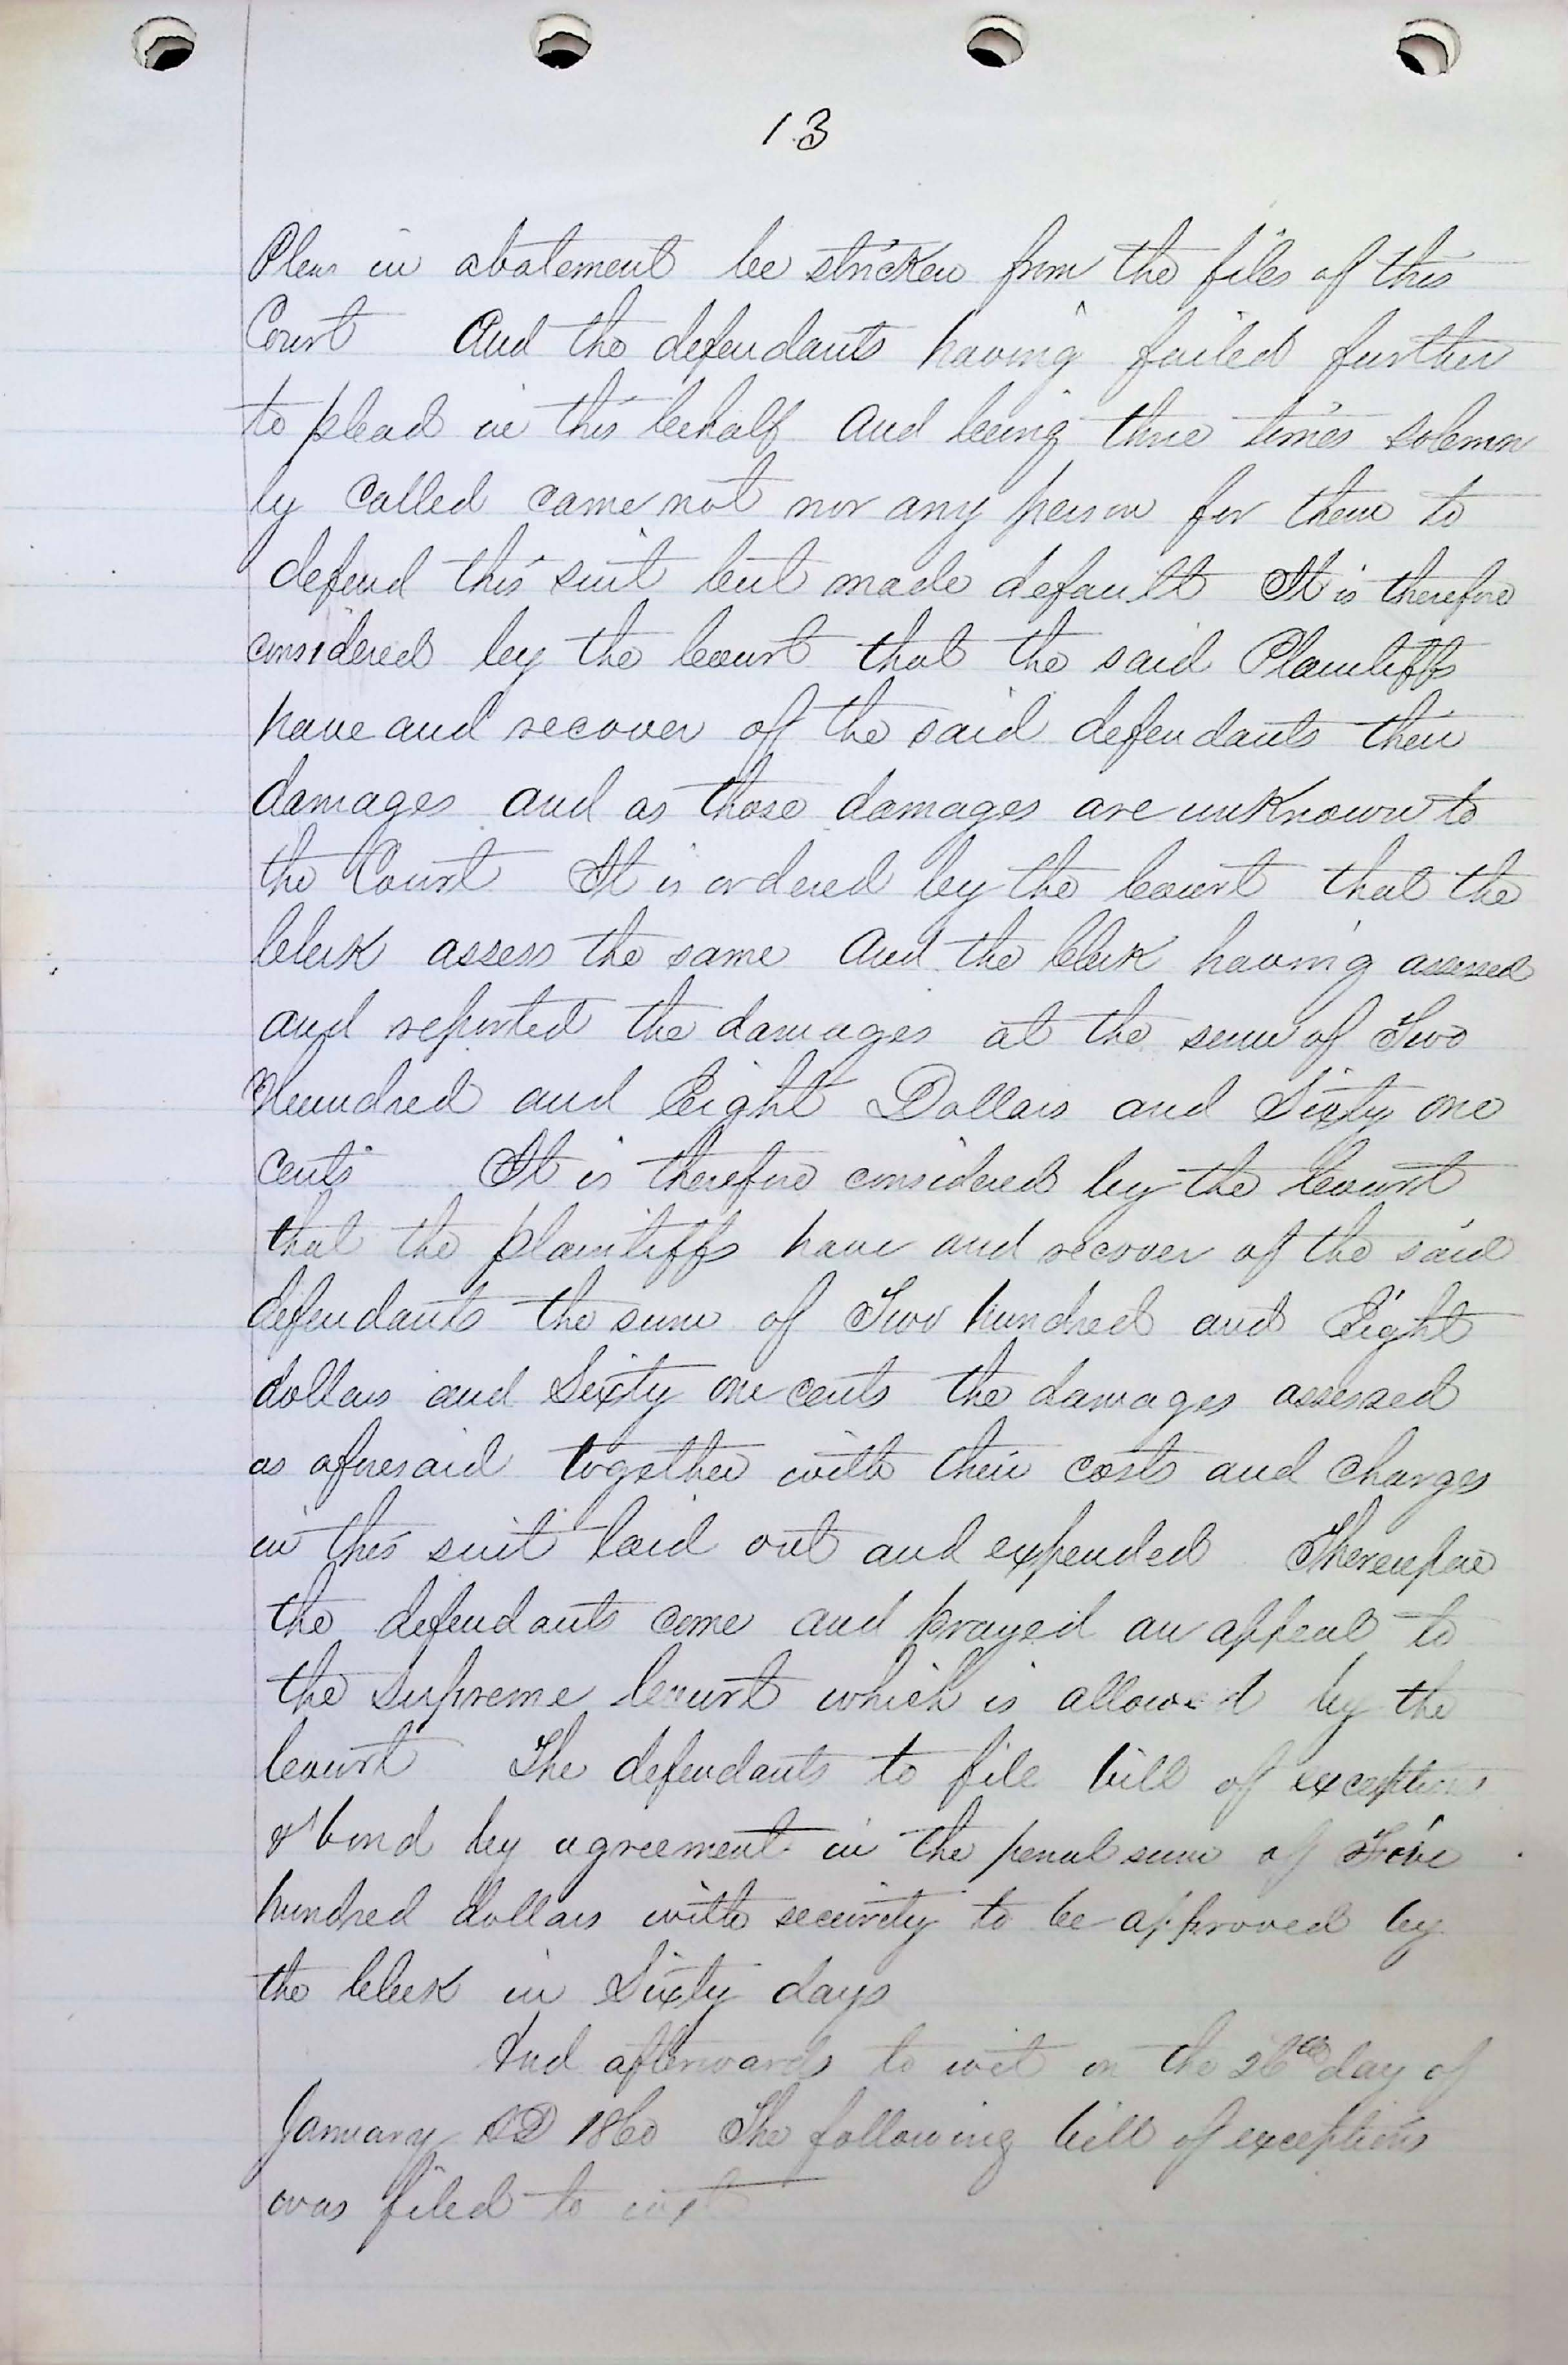 13
Pleas in abatement be stricken from the files of this
Court And the defendants having failed further
to plead in this behalf and being three times solemn
ly called came not nor any person for them to
defend this suit but made default It is therefore
considered by the Court that the said Plaintiffs
have and recover of the said defendants their
damages and as those damages are unknown to
the Court It is ordered by the Court that the
Clerk assess the same and the Clerk having assessed
and reported the damages at the sum of Two
Hundred and Eight Dollars and Sixty one
cents It is therefore considered by the Court
that the plaintiffs have and recover of the said
defendants the sum of Two hundred and Eight
dollars and Sixty one cents the damages assessed
as aforesaid together with their costs and charges
in this suit laid out and expended Thereupon
the defendants come and prayed an appeal to
the supreme Court which is allowed by the
Court The defendants to file bill of exceptions
& bond by agreement in the penal sum of Five
hundred dollars with security to be approved by
the Clerk in Sixty days
And afterwards to wit on the 26th day of
January AD 1860 The following bill of exceptions
was filed to wit